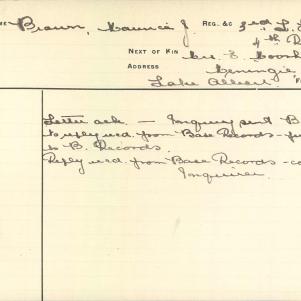 ME Brown, Maurice J. REG. &C 3rd L.
4th
NEXT OF KIN Mrs. E.
ADDRESS Meningie
Lake Albert
Letter ack. — Inquiry sent B
to reply recd. from Base Records —
to B. Records.
Reply recd. from Base Records —
Inquirer.